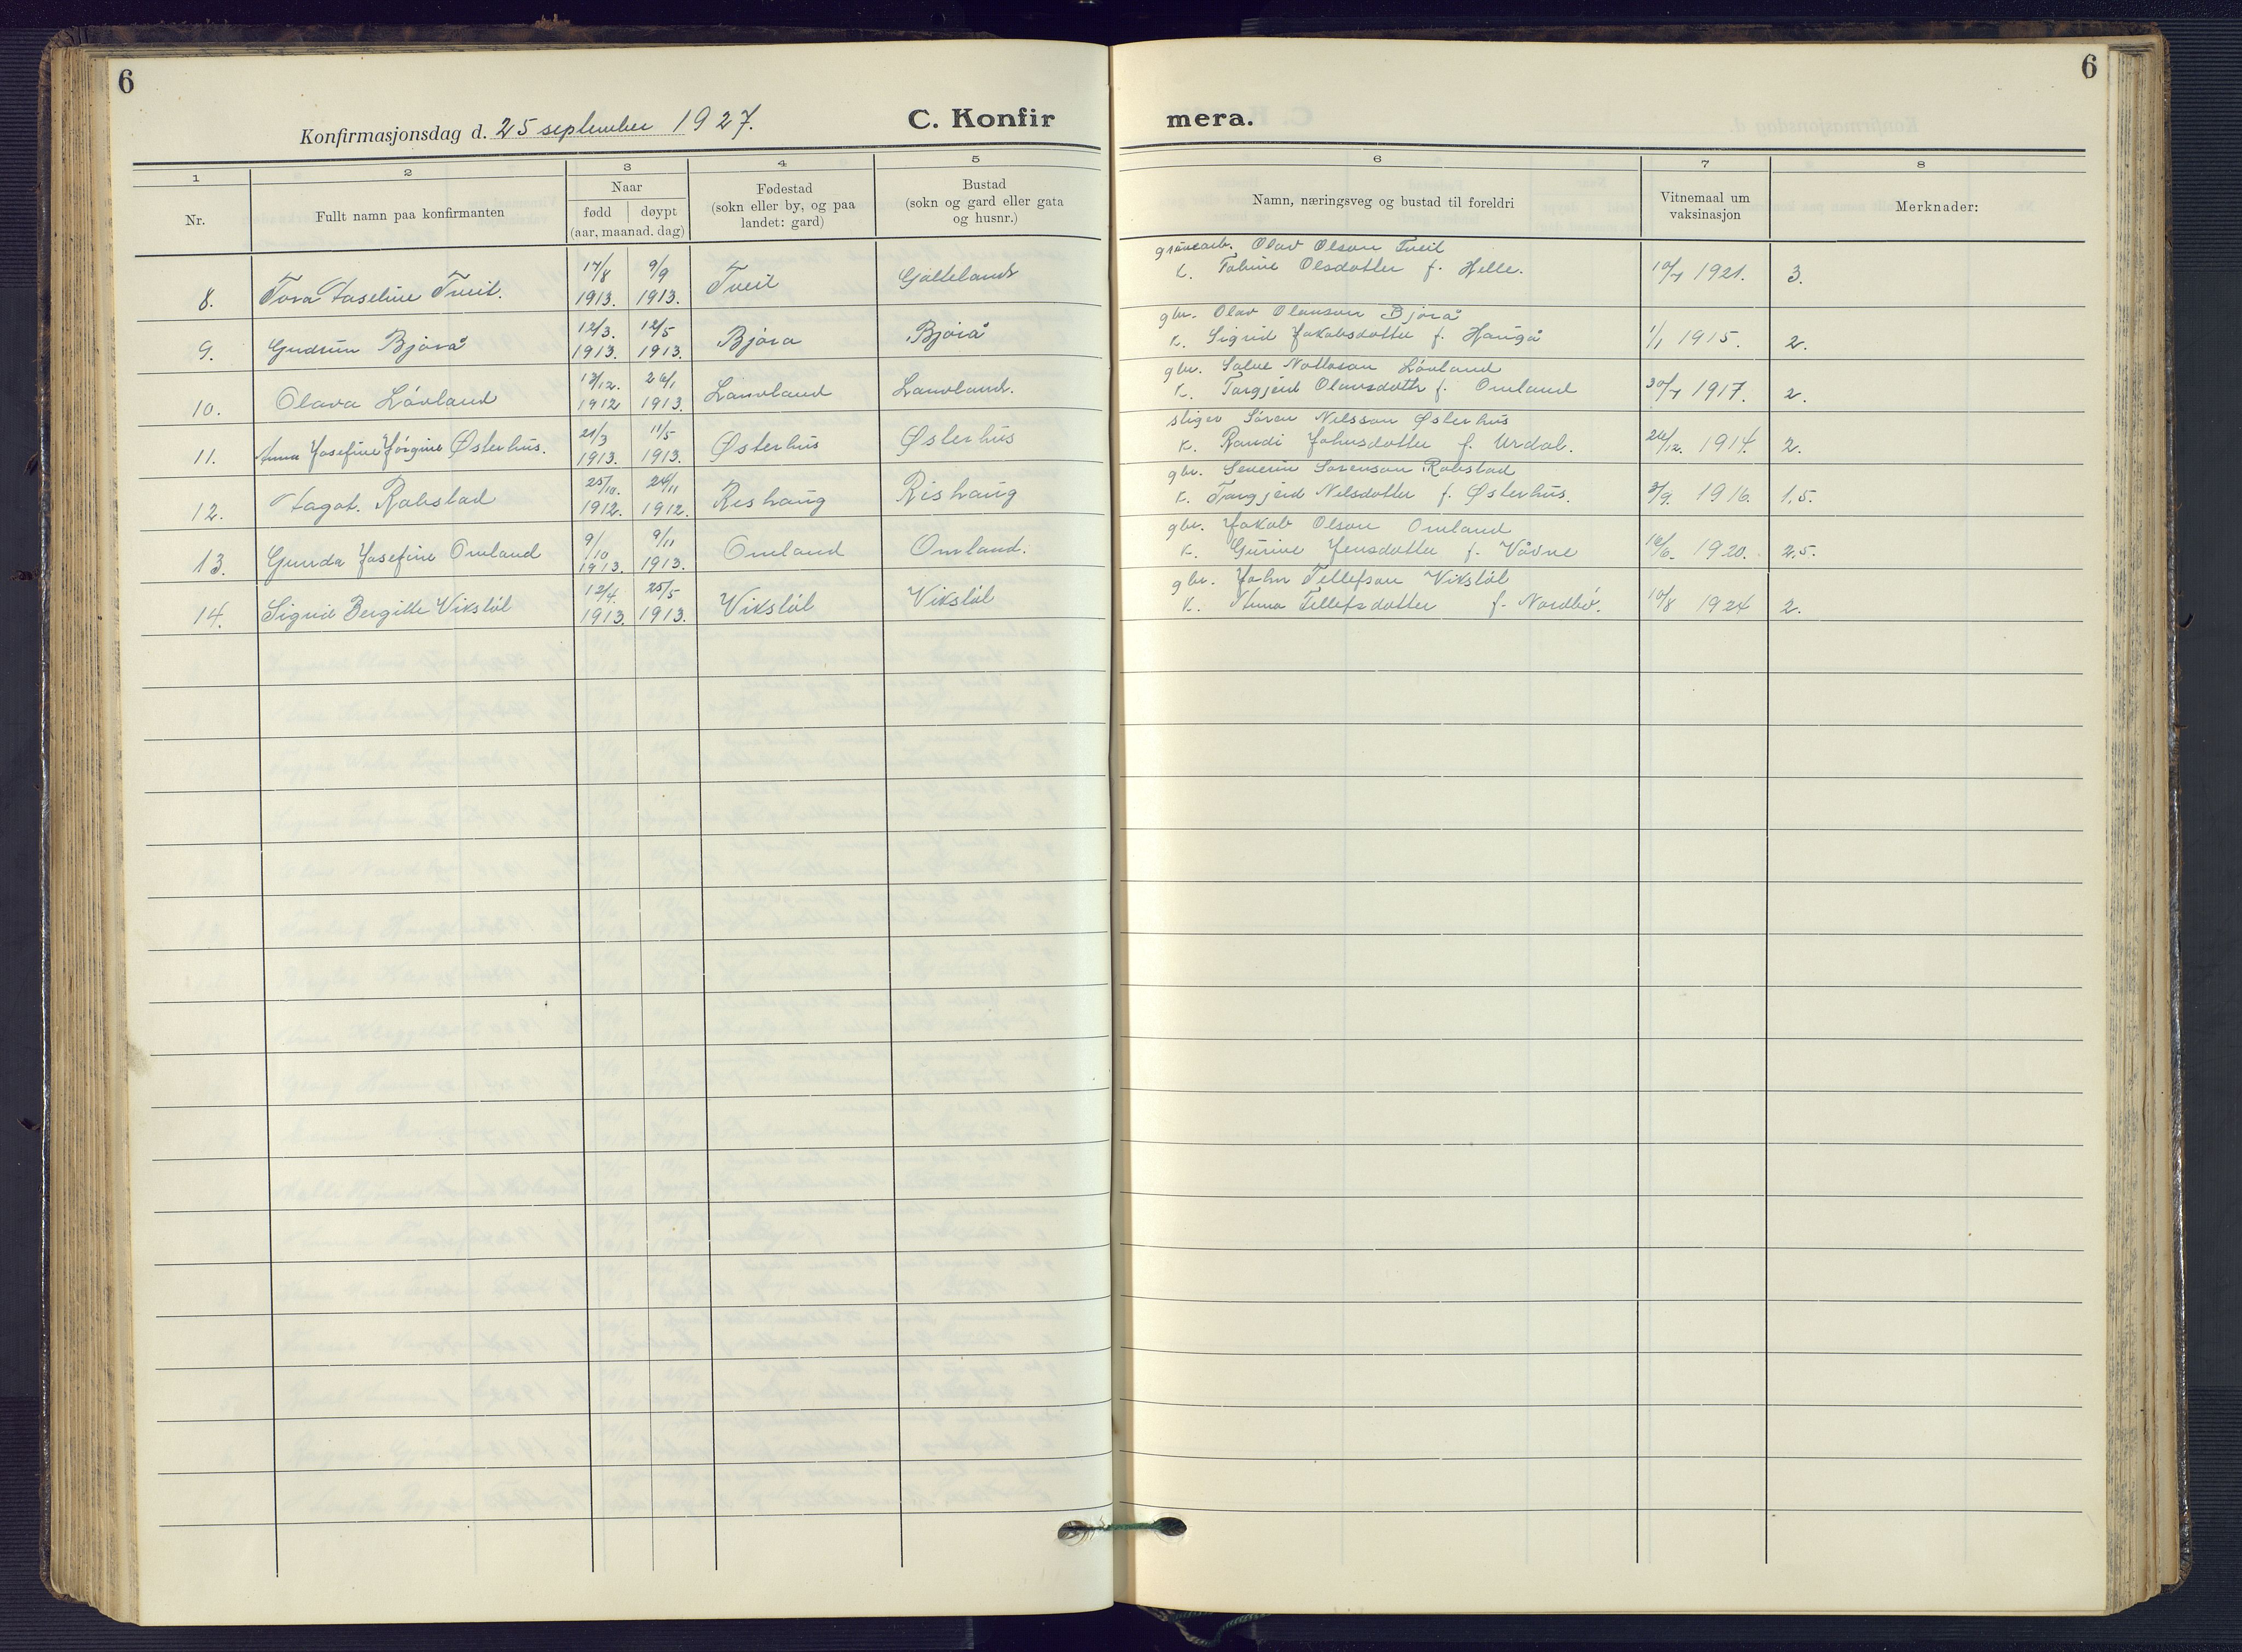 6
6
Konfirmasjonsdag d. 25 september 1927.
C. Konfir
mera.
1 2 3 4 5 6 7 8
Nr.
Fullt namn paa konfirmanten
Naar
fødd døypt
(aar, maanad. dag)
Fødestad
(sokn eller by, og paa
landet: gard)
Bustad
(sokn og gard eller gata
og husnr.)
Namn, næringsveg og bustad til foreldri
Vitnemaal um
vaksinasjon
Merknader:
17/8 9/9 gruvearb. Olav Olson Tveit
8. Tora Taseline Tveit. 1913. 1913. Tveit Galteland K. Tobine Olsdotter f. Helle. 10/7 1921. 3.
12/3. 12/5 gbr. Olav Olauson Bjorå
9. Gudrun Bjorå 1913. 1913. Bjora Bjorå K. Sigrid Jakobsdotter f. Haugå 1/1 1915. 2.
13/12. 26/1 gbr. Salve Nottoson Lóvland
10. Olava Lóvland 1912 1913. Lauvland Lauvland. K. Torgjerd Olavsdottr f. Omland 30/7 1917. 2.
21/3 11/5 stiger Søren Nilsson Østerhus
11. Anna Josefine Jórgine Østerhus. 1913. 1913. Østerhus Østerhus K. Randi Johnsdotter f. Urdal. 26/12. 1914. 2.
25/10. 24/11 gbr. Severin Sørenson Robstad
12. Hagot. Robstad 1912. 1912. Rishaug Rishaug K. Torgjerd Nilsdotter f. Østerhus. 3/9. 1916. 1,5.
9/10 9/11 gbr. Jakob Olson Omland
13. Gunda Josefine Omland 1913. 1913. Omland Omland. K. Gurine Jensdotter f. Våvne 16/6. 1920. 2,5.
12/4. 25/5 gbr. John Tellefson Vikstól
14. Sigrid Bergitte Vikstól 1913. 1913. Vikstól Vikstól K. Anna Tellefsdotter f. Nordbó. 10/8 1924 2.